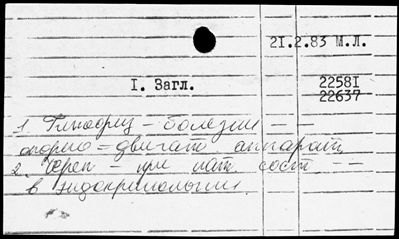 21.2.83 М.Л.
I. Загл.
22581
22637
1. - болезни - -
опорно = двигат. аппарат,
2. Череп - при пат. сост. - -
в эндокринологии.